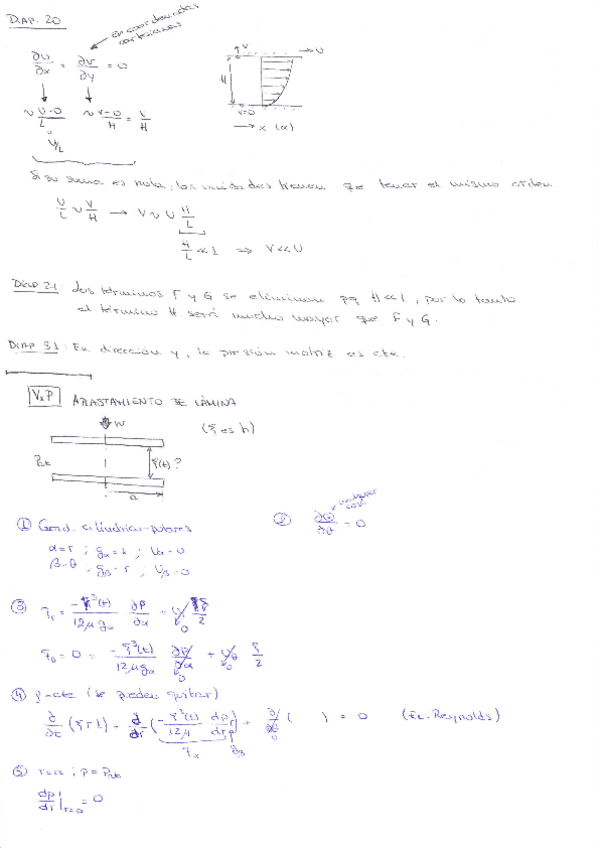 DIAP. 20
en coordenadas cartesianas
∂u/∂x + ∂v/∂y = 0
~ U-0/L ~ V-0/H = V/H
U/L
v → U
H
v=0
→ x (α)
Si su suma es nula, las unidades tienen que tener el mismo orden
U/L ~ V/H → V ~ U H/L
H/L << 1 ⇒ V << U
DIAP 21: Los términos F y G se eliminan pq H<<L, por lo tanto
el término H será mucho mayor que F y G.
DIAP 31: En dirección y, la presión motriz es cte.
VxP APLASTAMIENTO DE LÁMINA
W (ξ es h)
Patm ξ(t)?
a
① Coord. cilíndrico-polares ② ∂( )/∂θ = 0
α=r ; gα=1 ; Uα=0
β=θ ; gβ=r ; Uβ=0
③ qr = -ξ³(t)/12μgα ∂P/∂α + U ξ/2
0
qθ = 0 = -ξ³(t)/12μgα ∂P/∂α + U ξ/2
④ ρ=cte (se pueden quitar)
∂/∂t (ξr1) + ∂/∂r (-ξ³(t)/12μ dp/dr r) + ( ) = 0 (Ec. Reynolds)
⑤ r=a ; p = Patm
dp/dr|r=0 = 0